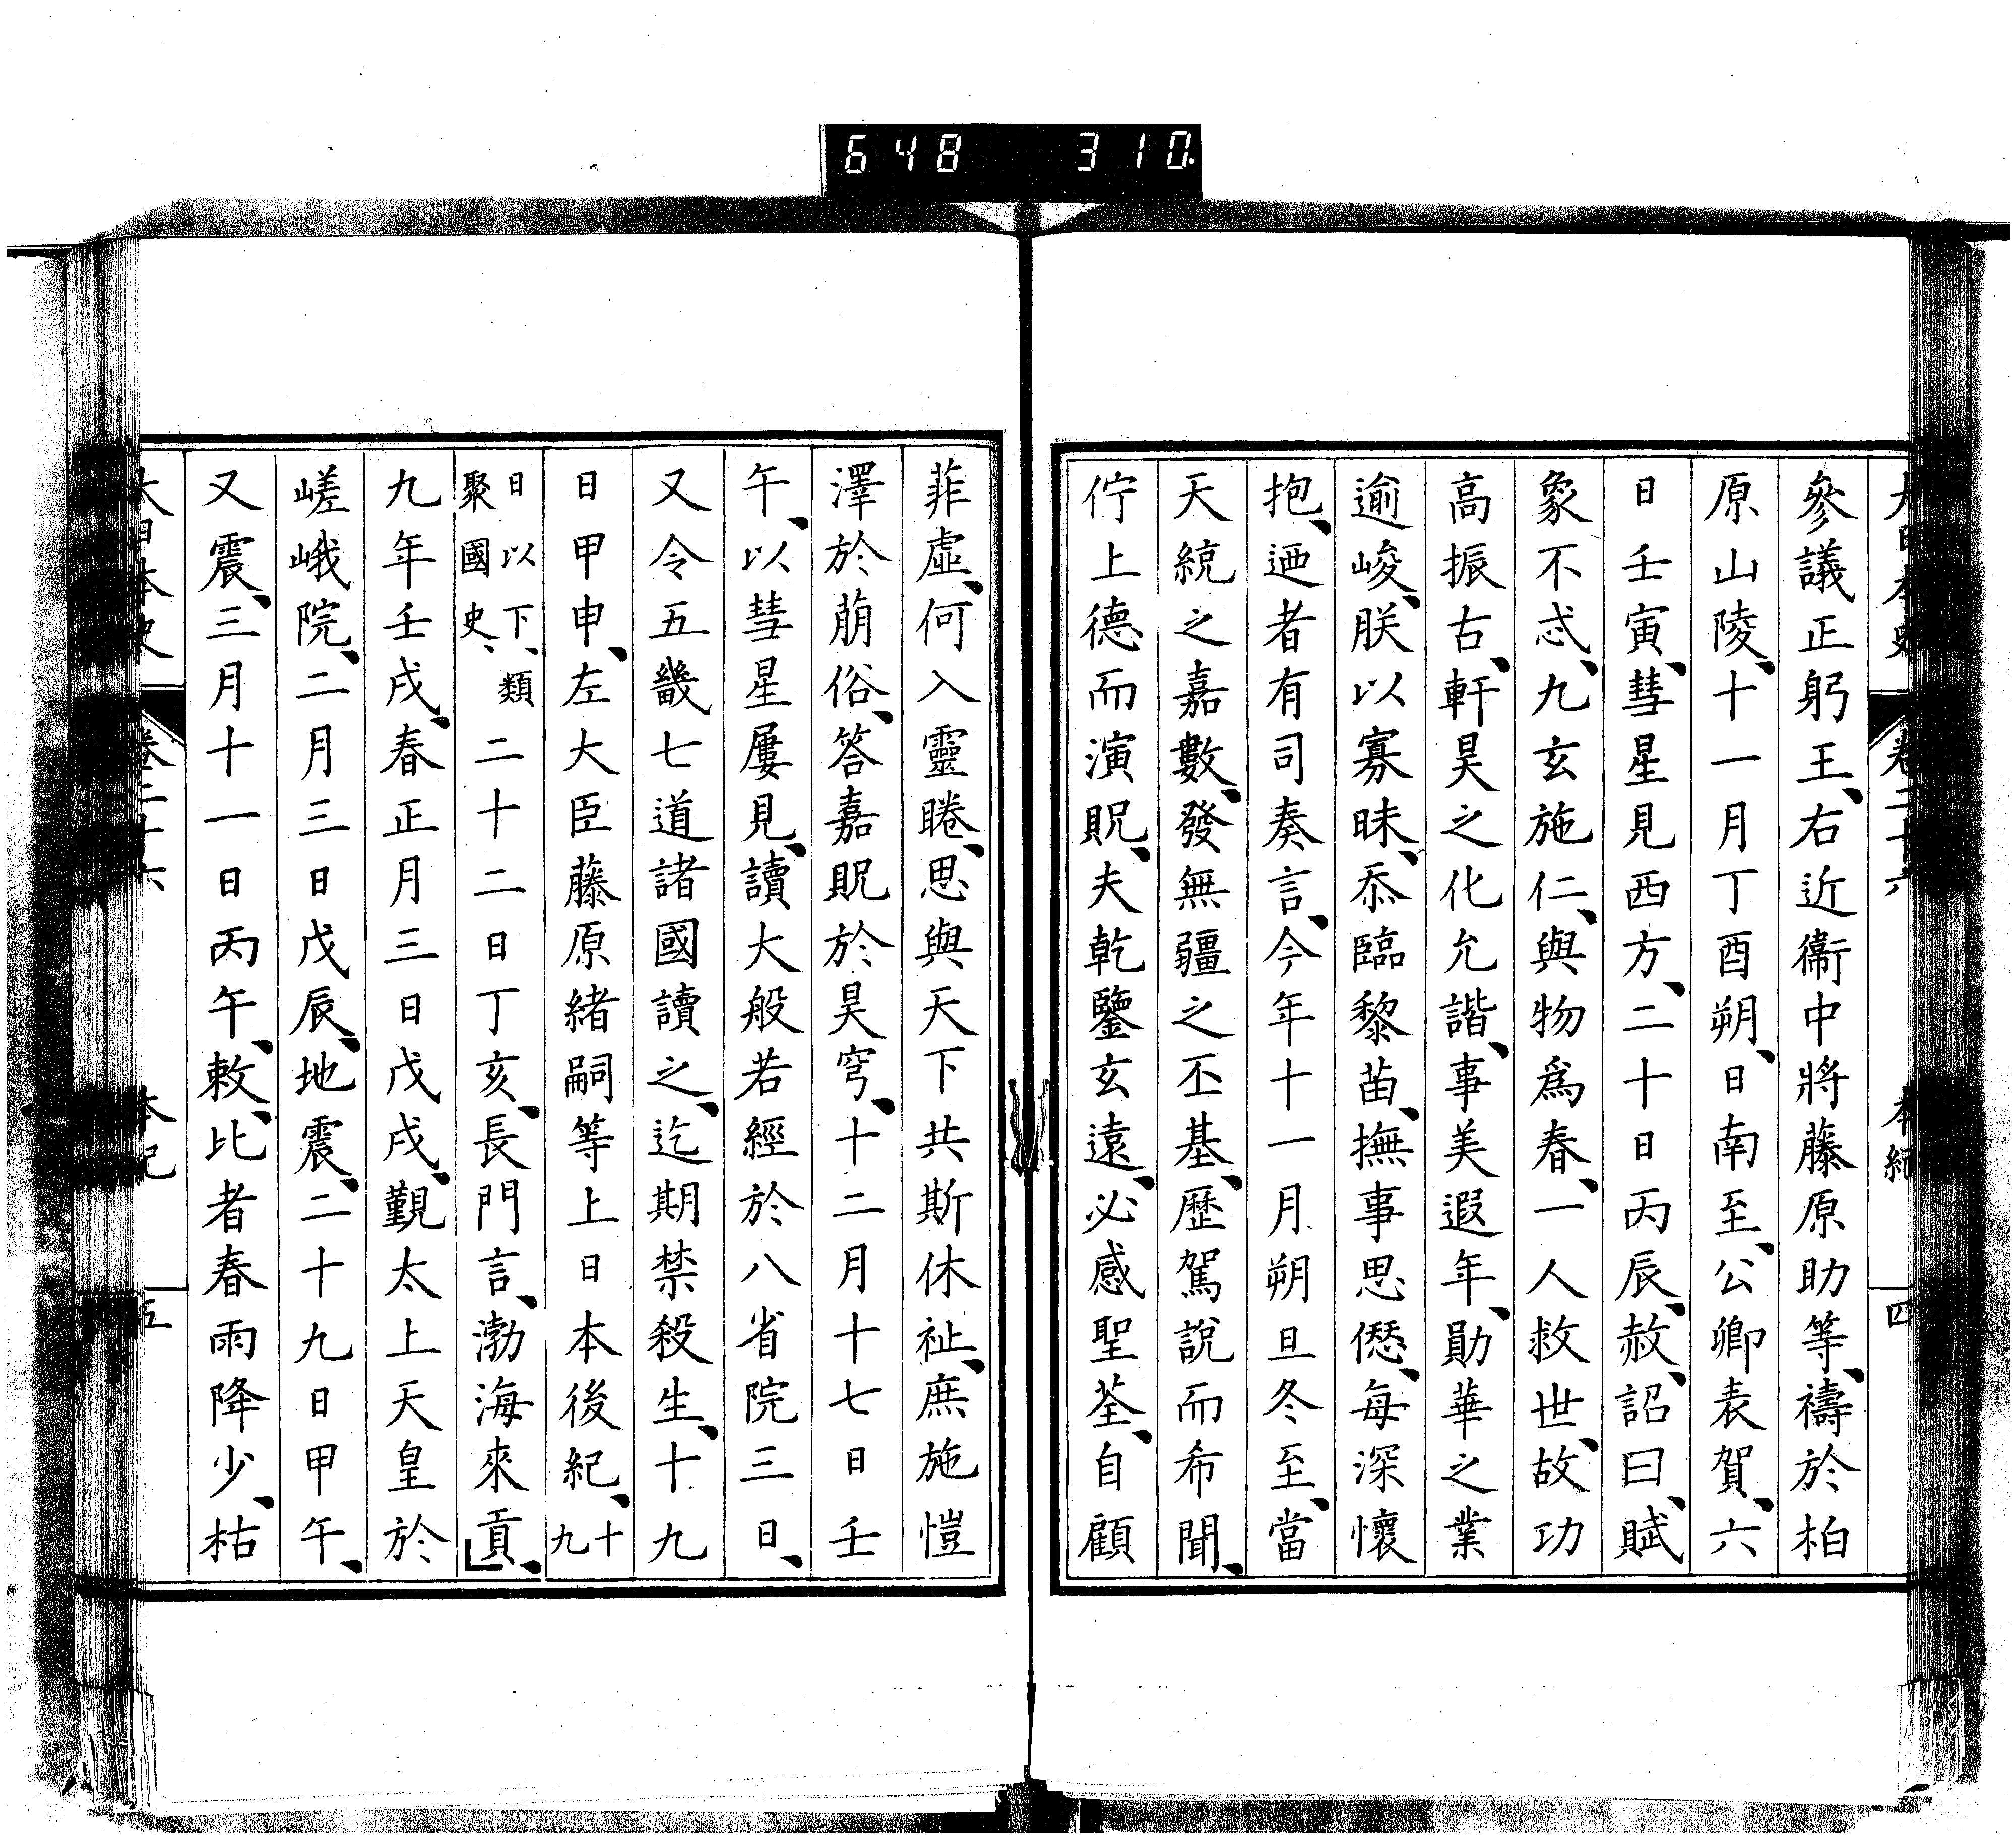 648 310
大日本史 卷二十六 本紀 四
參議正躬王、右近衞中將藤原助等、禱於柏
原山陵、十一月丁酉朔、日南至、公卿表賀、六
日壬寅、彗星見西方、二十日丙辰、赦、詔曰、賦
象不忒、九玄施仁、與物爲春、一人救世、故功
高振古、軒昊之化允諧、事美遐年、勛華之業
逾峻、朕以寡昧、忝臨黎苗、撫事思愆、每深懷
抱、迺者有司奏言、今年十一月朔旦冬至、當
天統之嘉數、發無疆之丕基、歷駕說而希聞、
佇上德而演貺、夫乾鑒玄遠、必感聖荃、自顧
菲虛、何入靈睠、思與天下共斯休祉、庶施愷
澤於萠俗、答嘉貺於昊穹、十二月十七日壬
午、以彗星屢見、讀大般若經於八省院三日、
又令五畿七道諸國讀之、迄期禁殺生、十九
日甲申、左大臣藤原緒嗣等上日本後紀、十九
日以下、類聚國史、二十二日丁亥、長門言、渤海來貢、
九年壬戌、春正月三日戊戌、覲太上天皇於
嵯峨院、二月三日戊辰、地震、二十九日甲午、
又震、三月十一日丙午、敕、比者春雨降少、枯
大日本史 卷二十六 本紀 五